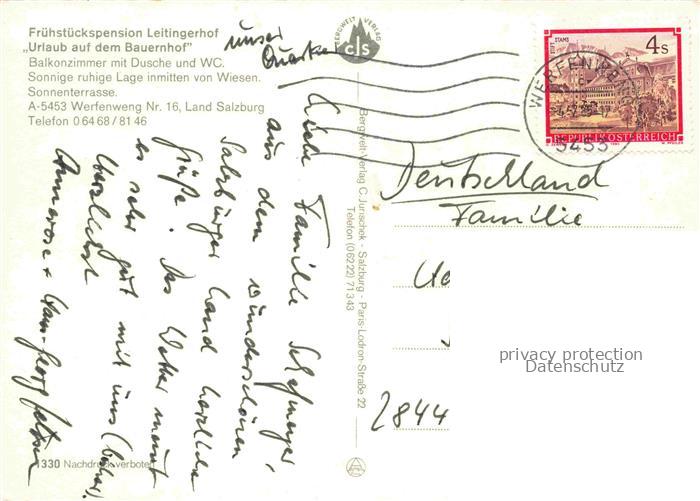 Frühstückspension Leitingerhof
„Urlaub auf dem Bauernhof"
Balkonzimmer mit Dusche und WC.
Sonnige ruhige Lage inmitten von Wiesen.
Sonnenterrasse.
A-5453 Werfenweng Nr. 16, Land Salzburg
Telefon 0 64 68 / 81 46
unser
Quartier
BERGWELT VERLAG
cJs
Liebe Familie
aus dem wunderschönen
Salzburger Land herzliche
Grüße. Das Wetter meint
es sehr gut mit uns (bisher).
Herzlichst
Annerose + Hans-Georg
Bergwelt-Verlag C. Jurischek - Salzburg - Paris-Lodron-Straße 22
Telefon (0 62 22) 71 3 43
STIFT STAMS
4 S
REPUBLIK ÖSTERREICH
WERFENWENG
5453
Deutschland
Familie
2844
privacy protection
Datenschutz
1330 Nachdruck verboten